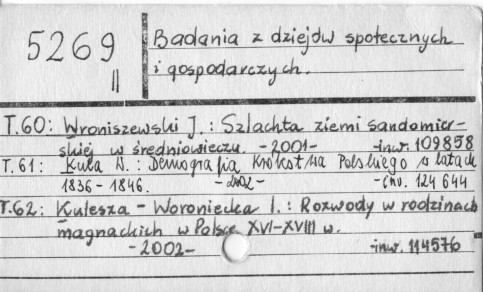 5269
II
Badania z dziejów społecznych
i gospodarczych.
T.60: Wroniszewski J.: Szlachta ziemi sandomier-
skiej w średniowieczu. -2001- inw. 109858
T.61: Kuba N.: Demografia Królestwa Polskiego w latach
1836-1846. -2002- -inw. 124 644
T.62: Kulesza-Woroniecka I.: Rozwody w rodzinach
magnackich w Polsce XVI-XVIII w.
-2002- -inw. 114576